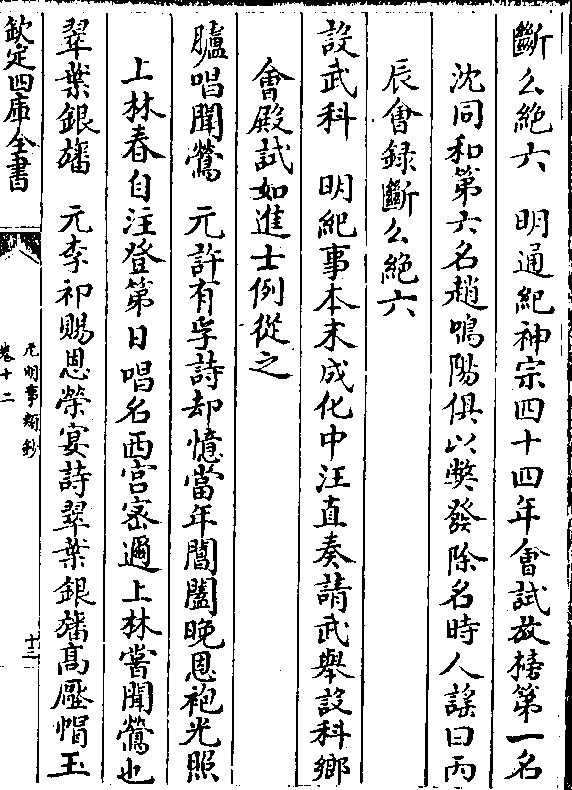 斷么絶六　明通紀神宗四十四年會試放榜第一名
沈同和第六名趙鳴陽俱以弊發除名時人謡曰丙
辰會録斷么絶六
設武科　明紀事本末成化中汪直奏請武舉設科鄉
會殿試如進士例從之
臚唱聞鶯　元許有孚詩却憶當年閶闔晚恩袍光照
上林春自注登第日唱名西宫宻邇上林嘗聞鶯也
翠葉銀旛　元李祁賜恩榮宴詩翠葉銀旛髙壓帽玉
欽定四庫全書
元明事類鈔
卷十二
十三